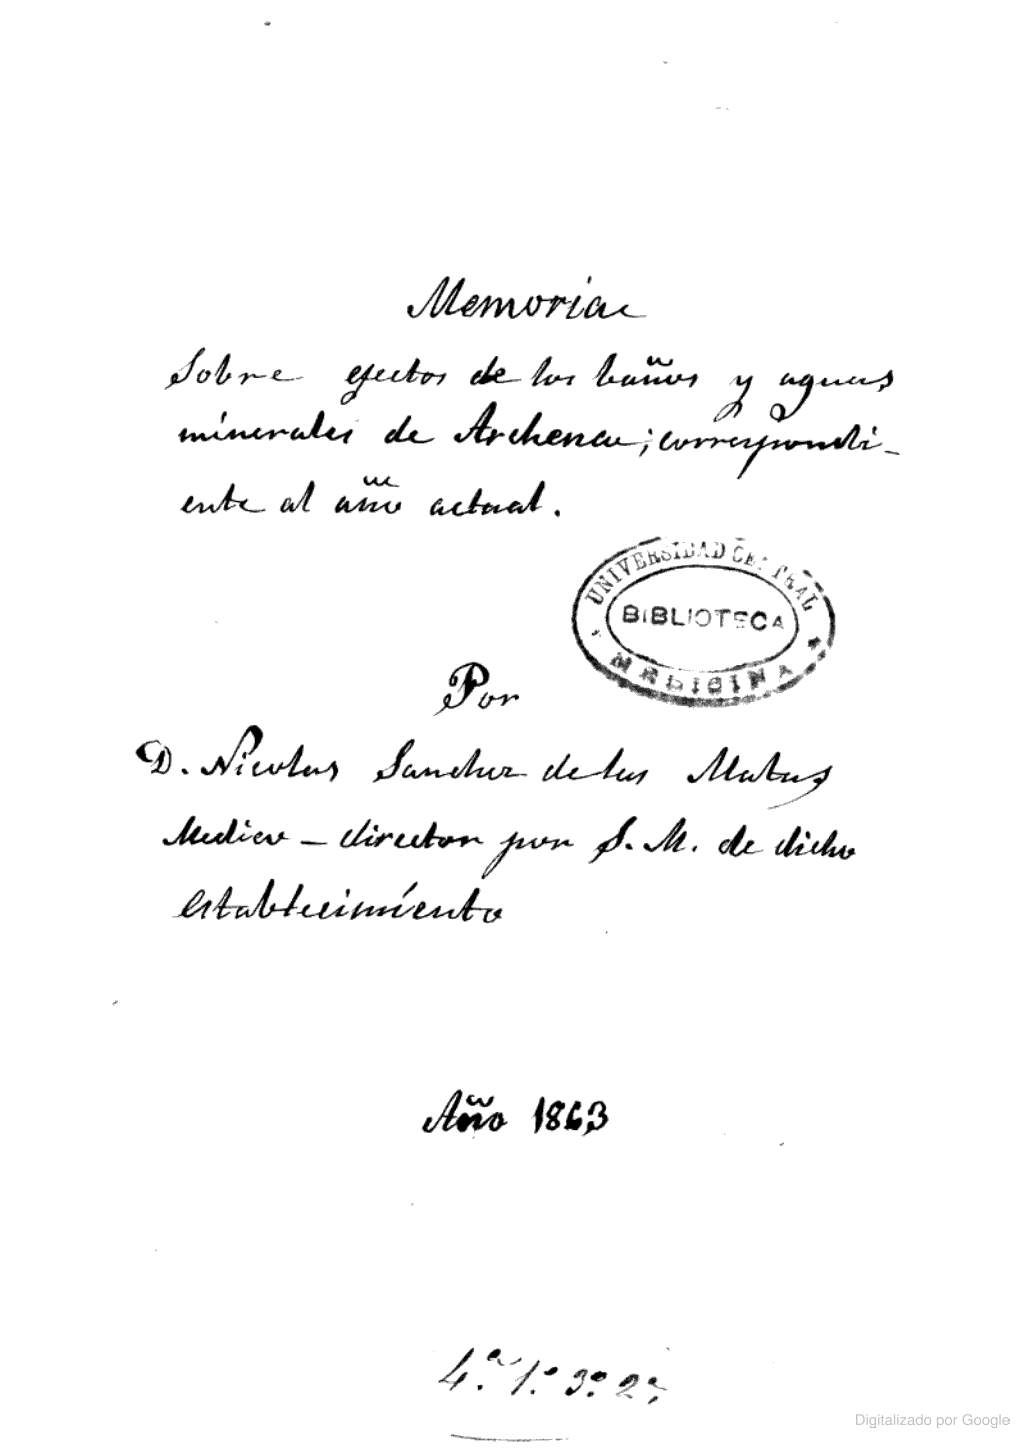 Memoria
Sobre efectos de los baños y aguas
minerales de Archena; correspondi-
ente al año actual.
UNIVERSIDAD CENTRAL
BIBLIOTECA
MEDICINA
Por
D. Nicolas Sanchez de las Matas
Medico - director por S. M. de dicho
establecimiento
Año 1863
4.ª 1.º 3º 2º
Digitalizado por Google